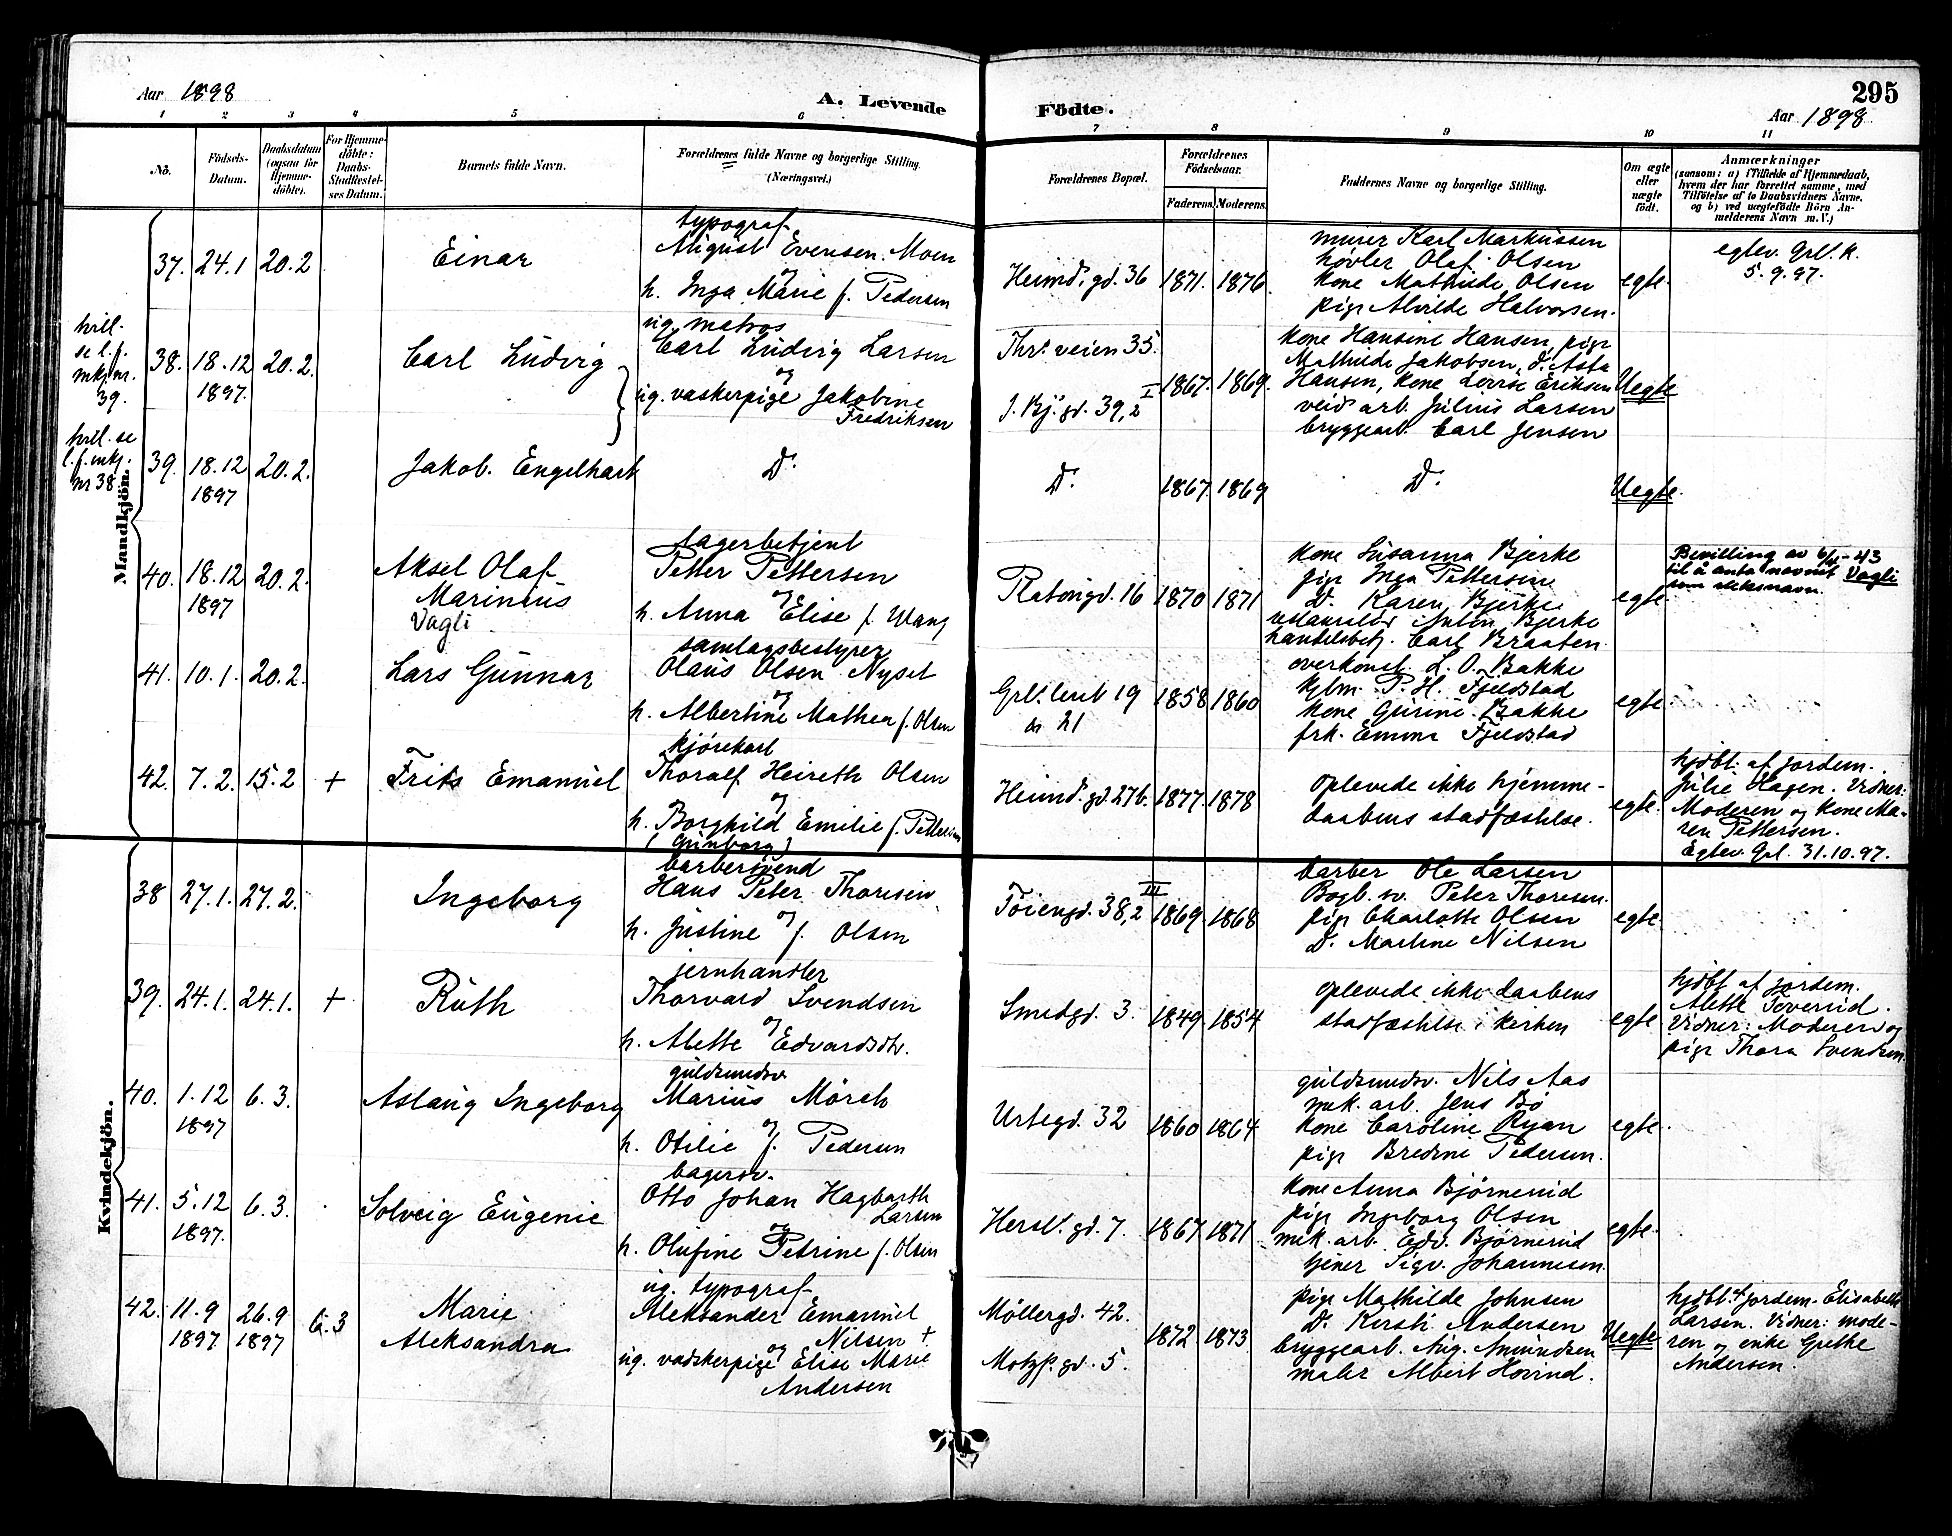 295
Aar 1898
A. Levende Födte.
Aar 1898
1 2 3 4 5 6 7 8 9 10 11
No.
Födsels-
Datum.
Daabsdatum
(ogsaa for
Hjemme-
döbte).
For Hjemme-
döbte:
Daabs-
Stadfæstel-
ses Datum.
Barnets fulde Navn.
Forældrenes fulde Navne og borgerlige Stilling.
(Næringsvei.)
Forældrenes Bopæl.
Forældrenes
Födselsaar.
Faderens. Moderens.
Faddernes Navne og borgerlige Stilling.
Om ægte
eller
uægte
födt.
Anmærkninger
(saasom: a) i Tilfælde af Hjemmedaab,
hvem der har forrettet samme, med
Tilföielse af to Daabsvidners Navne,
og b) ved uægtefödte Börn An-
melderens Navn m. V.)
Mandkjön.
37. 24.1 20.2 Einar
typograf
August Evensen Moen
og
h. Inga Marie f. Pedersen
Heimd. gd. 36 1871. 1876.
murer Karl Markussen
høvler Olaf Olsen
kone Mathilde Olsen
pige Alvilde Halvorsen.
egte.
egtev. Grl. k.
5.9.97.
tvill.
se l. f.
mkj. nr.
39.
38. 18.12
1897.
20.2. Carl Ludvig
ug. matros
Carl Ludvig Larsen
og
ug. vaskerpige Jakobine
Fredriksen
Thv. veien 35.
J. Bj. gd. 39,2 I
1867. 1869.
kone Hansine Hansen, pige
Mathilde Jakobsen, d. Asta
Hansen, kone Lovise Eriksen
veid arb. Julius Larsen
bryggearb. Carl Jensen
Uegte
tvill. se
l. f. mkj.
nr 38.
39. 18.12
1897
20.2. Jakob Engelhart
D.
D.
1867. 1869
D.
Uegte.
40. 18.12
1897
20.2. Aksel Olaf
Marinius
Vagli
lagerbetjent
Petter Pettersen
og
h. Anna Elise f. Wang
Platongd. 16 1870 1871
kone Susanna Bjerke
pige Inga Pettersen
D. Karen Bjerke
Anton Bjerke
handelsbetj. Carl Braaten.
egte.
Bevilling av 6/4-43
til å anta navnet Vagli
som slektsnavn.
41. 10.1. 20.2. Lars Gunnar
samlagsbestyrer
Olaus Olsen Nyset
og
h. Albertine Mathea f. Olsen
Grl. leret 19
og 21
1858 1860
overkonst. L. O. Bakke
kjbm. P. H. Fjeldstad
kone Gurine Bakke
frk. Emma Fjeldstad
egte.
42. 7.2. 15.2 + Frits Emanuel
kjørekarl
Thoralf Heireth Olsen
og
h. Borghild Emilie f. Pettersen
(Gunborg)
Heimd. gd. 27b. 1877 1878
oplevede ikke hjemme-
daabens stadfæstelse.
egte.
hjdbt. af jordem.
Julie Hagen. Vidner:
Moderen og kone Ma-
ren Pettersen.
Egtev. Grl. 31.10.97.
Kvindekjön.
38 27.1. 27.2. Ingeborg
barbersvend
Hans Peter Thoresen
og
h. Justine f. Olsen
Töiengd. 38,2 III 1869 1868
barber Ole Larsen
Bogb. sv. Peter Thoresen.
pige Charlotte Olsen
D. Martine Nilsen
egte.
39. 24.1. 24.1. + Ruth
jernhandler
Thorvald Svendsen
og
h. Alette Edvardsdtr.
Smedgd. 3. 1849 1854
oplevede ikke daabens
stadfæstelse i kirken
egte
hjdbt af jordem.
Alette Toverud.
Vidner: Moderen og
pige Thora Svendsen.
40. 1.12
1897
6.3. Aslaug Ingeborg
guldsmedsv.
Marius Mörch
og
h. Otilie f. Pedersen
Urtegd. 32 1860 1864
guldsmedsv. Nils Aas
mek. arb. Jens Bø
kone Caroline Ryan
pige Bredine Pedersen.
egte.
41. 5.12
1897.
6.3. Solveig Eugenie
bagersv.
Otto Johan Hagbarth
Larsen
og
h. Olufine Petrine f. Olsen
Hersl. gd. 7. 1867 1871
kone Anna Bjørnerud
pige Ingeborg Olsen
mek. arb. Edv. Bjørnerud
tjener Sigv. Johannesen.
egte.
42. 11.9
1897
26.9
1897
6.3 Marie
Aleksandra
ug. typograf
Aleksander Emanuel
Nilsen +
og
ug. vadskerpige Elise Marie
Andersen
Møllergd. 42.
Motzf. gd. 5.
1872 1873.
pige Mathilde Johnsen
D. Kirsti Andersen
bryggearb. Aug. Amundsen
maler Albert Hovind.
Uegte
hjdbt. af jordem. Elisabeth
Larsen. Vidner: mode-
ren og enke Grethe
Andersen.